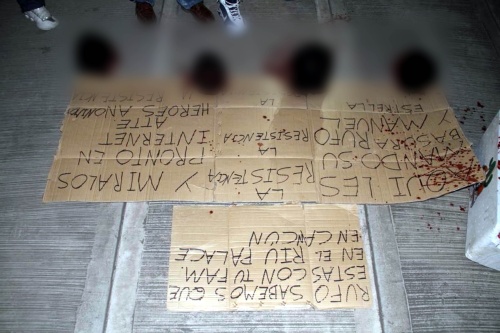 AQUI LES
MANDO SU
BASURA RUFO
Y MANUEL
ESTRELLA
LA
RESISTENCIA
LA
RESISTENCIA
LA
Y MIRALOS
PRONTO EN
INTERNET
ATTE
HEROES ANONIMOS
RUFO SABEMOS QUE
ESTAS CON TU FAM.
EN EL RIU PALACE
EN CANCUN